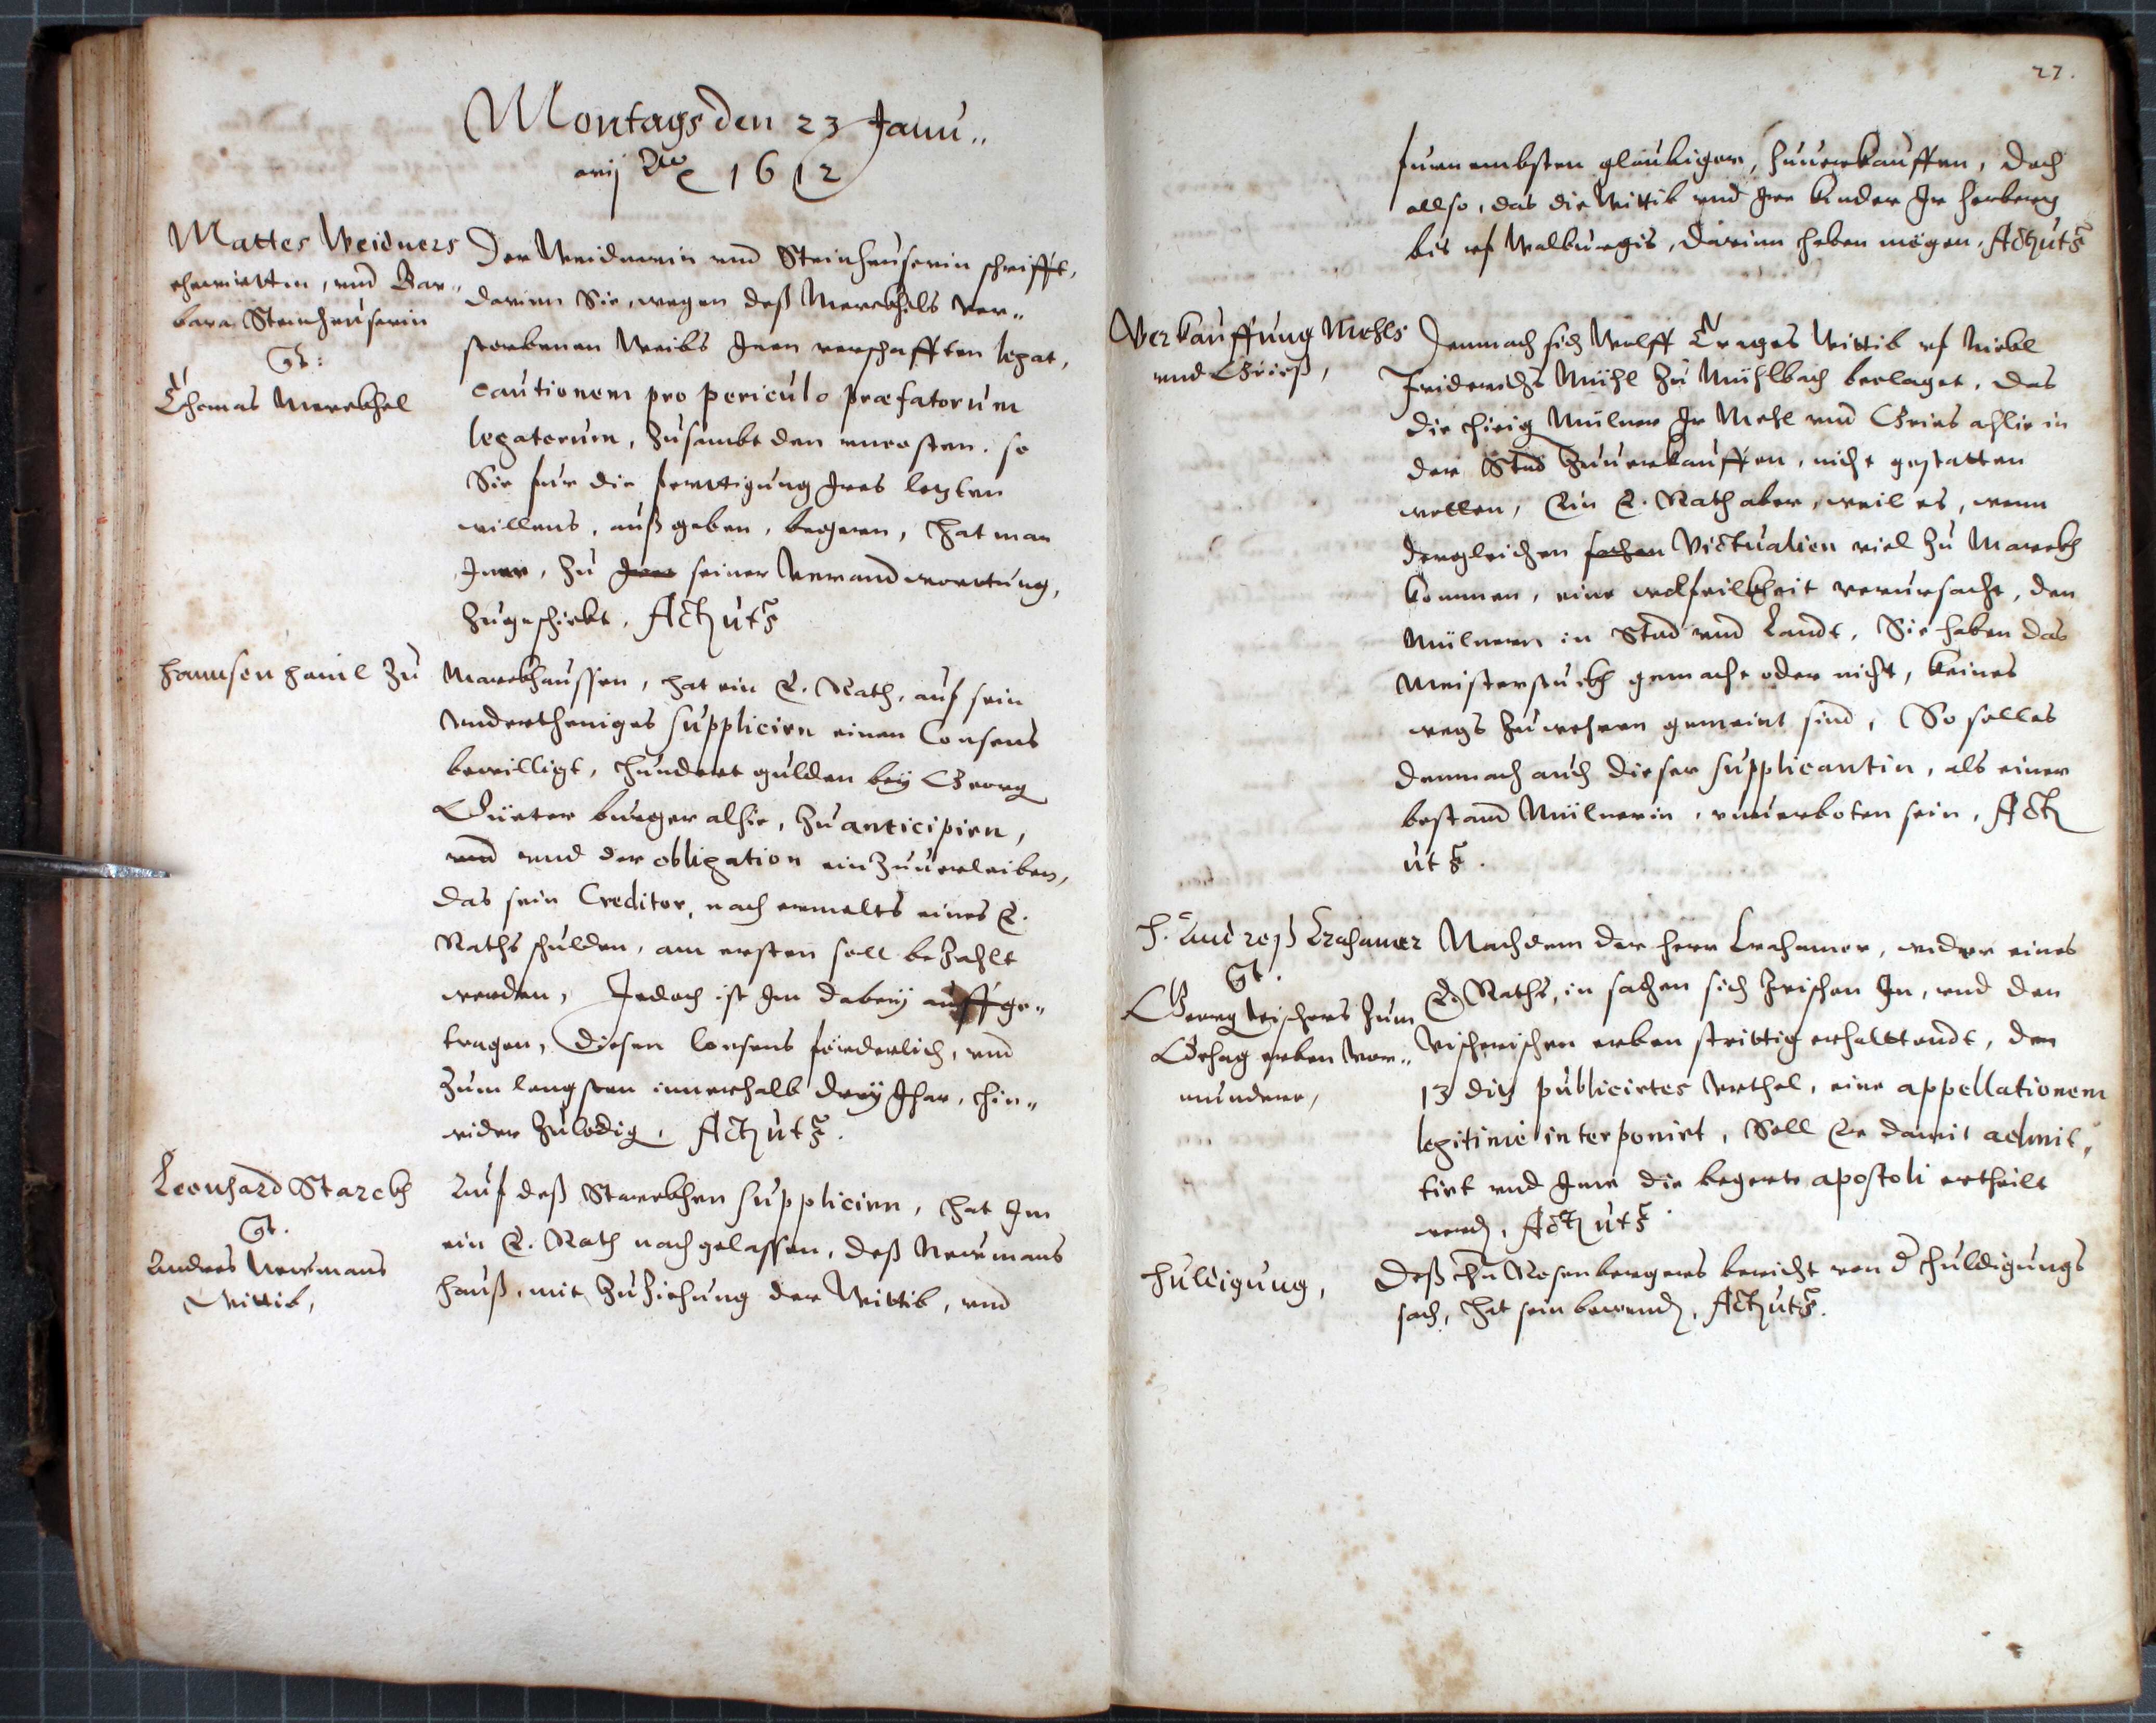 Montags den 23 Janu„
arij Ao 1612
Mattes Weidners
ehewirttin, und Bar„
bara Steinheuserin
Ct:
Thomas Merckhel
Der Weidnerin und Steinheuserin schrifft,
darinn Sie, wegen deß Merckhels ver„
storbenen Weibs Inen verschafften legat,
cautionem pro periculo præfatorum
legatorum, zusambt den uncosten. so
Sie fur die fertigung Ires letzten
willens, auß geben, begeren, hat man
Ime, zu Irer seiner Verandworttung,
zugeschickt. Act ut s
Hannsen Hanil zu
Marckhaussen, hat ein E. Rath, auf sein
undertheniges supplicirn einen Consens
bewilligt, hundert gulden bey Georg
burger alhie, zu anticipirn,
und und der obligation einzuuerleiben,
das sein Creditor, nach ermelts eines E.
Raths schulden, am ersten soll bezahlt
werden, Jedoch ist Im dabey auffge„
tragen, diesen Consens förderlich, und
zum lengsten innerhalb drey Jhar, hin„
wider zuledig, Act ut s.
Leonhard Starckh
Ct.
Andres Newmans
Wittib,
Auf deß Starckhen supplicirn, hat Im
ein E. Rath nachgelassen, deß Newmans
hauß, mit Zuziehung der Wittib, und
27.
furnembsten gläubiger, zuuerkauffen, doch
allso, das die Wittib und Ire kinder Ir herberg
bis uf Walburgis, darinn haben mögen, Act ut s
Verkauffung Mehls
und Grieß,
Demnach sich Wolff Trages Wittib uf Niebl
Friderichs Mühl zu Mühlbach beclaget, das
die hieig Mülner Ir Mehl und Gries alhie in
der Stad zuuerkauffen, nicht gestatten
wollen, Ein E. Rath aber, weil es, wenn
dergleichen sachen Victualien viel zu Marckh
kommen, eine wolfeilkheit verursacht, den
Mülnern in Stad und Landt, Sie haben das
Meisterstuckh gemacht oder nicht, keines
wegs zuwehren gemeint sind, So solles
demnach auch dieser supplicantin, als einer
bestand Mülnerin, unuerboten sein, Act
ut s.
H. Andreß Erhamer
Ct.
Georg Vischers zum
Gehag erben Vor„
mundere,
Nachdem der herr Erhamer, wider eines
E. Raths, in sachen sich zwischen Im, und den
Vischerischen erben strittig erhalttendt, den
13 diß publicirtes Urthel, eine appellationem
legitime interponirt, Soll Er damit admit„
tirt und Ime die begerte apostoli ertheilt
werd, Act ut s.
Huldigung,
Deß hn Rosenbergers bericht von d huldigungs
sach, hat sein bewend, Act ut s.